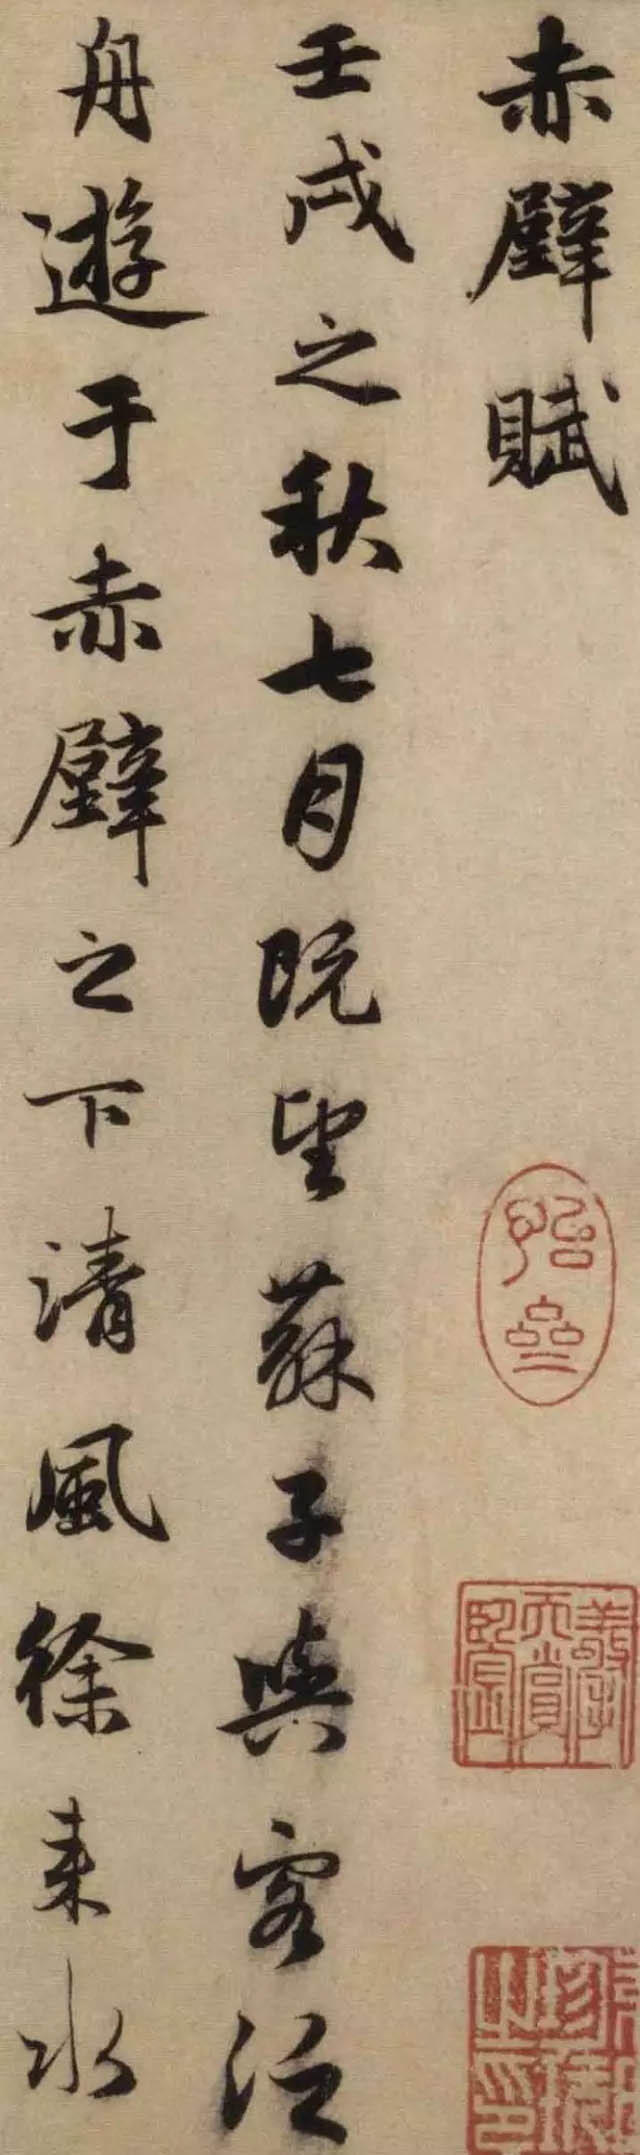 赤壁賦
壬戌之秋七月既望蘇子與客泛
舟遊于赤壁之下清風徐来水